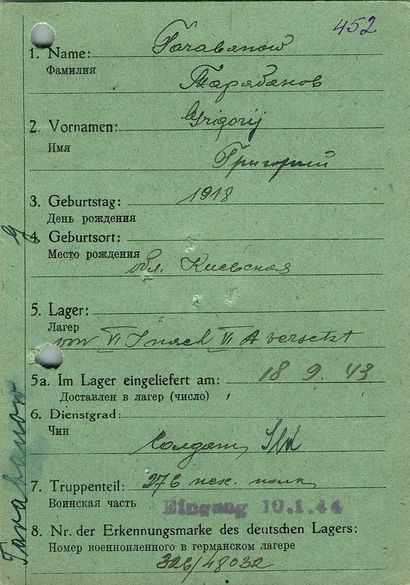 452
1. Name: Tarabanow
Фамилия
Тарабанов
2. Vornamen: Grigorij
Имя
Григорий
3. Geburtstag: 1918
День рождения
4. Geburtsort:
Место рождения
обл. Киевская
5. Lager:
Лагерь
von VI nach VI A versetzt
5a. Im Lager eingeliefert am: 18 9. 43
Доставлен в лагерь (число)
6. Dienstgrad:
Чин
Солдат
7. Truppenteil: 276 пех. полк
Воинская часть
Eingang 10.1.44
8. Nr. der Erkennungsmarke des deutschen Lagers:
Номер военнопленного в германском лагере
326/48032